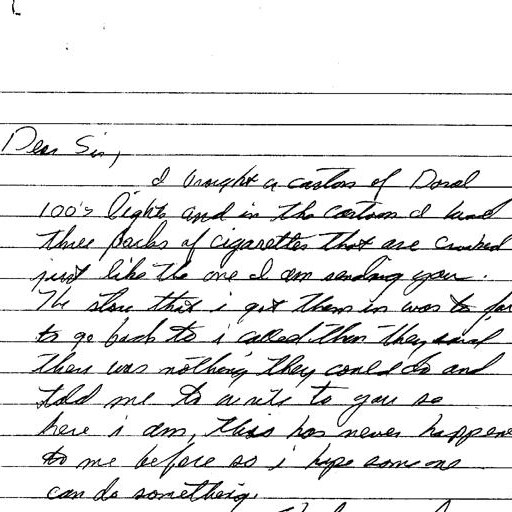 Dear Sir,
I bought a carton of Doral
100's lights and in the carton I had
three packs of cigarettes that are crooked
just like the one I am sending you.
The store that i got them in was to far
to go back to i called them they said
there was nothing they could do and
told me to write to you so
here i am, this has never happene
to me before so i hope someone
can do something.